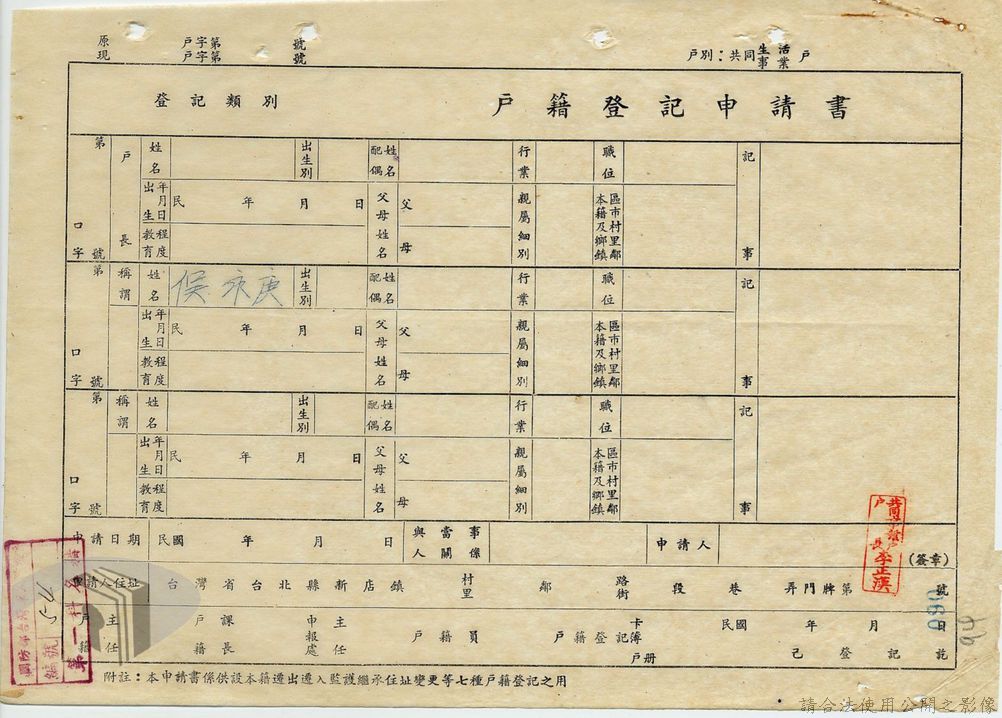 原 戶字第 號
現 戶字第 號
戶別：共同 生活 事業 戶
登記類別
戶籍登記申請書
第 口字 號
戶長
姓名 出生別 配偶姓名 行業 職位 記事
出生年月日 民 年 月 日 父母姓名 父 母 親屬細別 本籍及鄉鎮區市村里鄰
教育程度
第 口字 號
稱謂
姓名 侯永庚 出生別 配偶姓名 行業 職位 記事
出生年月日 民 年 月 日 父母姓名 父 母 親屬細別 本籍及鄉鎮區市村里鄰
教育程度
第 口字 號
稱謂
姓名 出生別 配偶姓名 行業 職位 記事
出生年月日 民 年 月 日 父母姓名 父 母 親屬細別 本籍及鄉鎮區市村里鄰
教育程度
申請日期 民國 年 月 日 與當事人關係 申請人 (簽章)
戶長李正漢
申請人住址 台灣省台北縣新店鎮 村里 鄰 路街 段 巷 弄門牌第 號
戶籍主任 戶籍課長 申報處主任 戶籍員 戶籍登記 卡簿戶册 民國 年 月 日 已登記訖
編號
第一科
060
附註：本申請書係供設本籍遷出遷入監護繼承住址變更等七種戶籍登記之用
請合法使用公開之影像